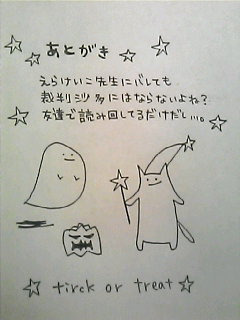 あとがき
えらけいこ先生にバレても
裁判沙多にはならないよね?
友達で読み回してるだけだし...。
tirck or treat